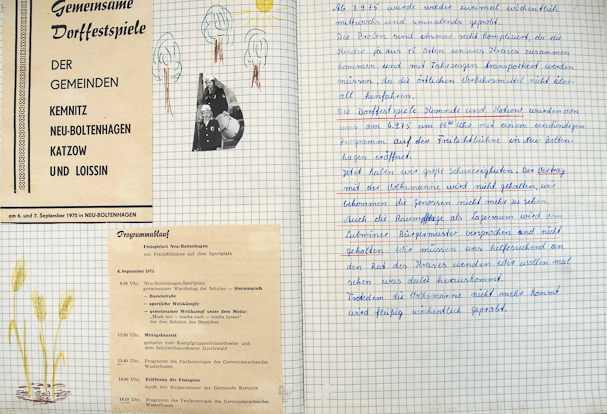 Gemeinsame
Dorffestspiele
DER
GEMEINDEN
KEMNITZ
NEU-BOLTENHAGEN
KATZOW
UND LOISSIN
am 6. und 7. September 1975 in NEU-BOLTENHAGEN
Programmablauf
Festspielort Neu-Boltenhagen
mit Freilichtbühne auf dem Sportplatz
6. September 1975
9.00 Uhr. Neu-Boltenhagen/Sportplatz
gemeinsamer Wandertag der Schulen – Sternmarsch
– Bastelstraße
– sportliche Wettkämpfe
– gemeinsamer Wettkampf unter dem Motto:
„Mach mit – machs nach – machs besser“
der drei Schulen des Bereiches
12.00 Uhr. Mittagskonzert
gestaltet vom Kampfgruppenorchester und
dem Schülerblasorchester Greifswald
13.40 Uhr. Programm des Fanfarenzuges des Gemeindeverbandes
Wusterhusen
14.00 Uhr. Eröffnung der Festspiele
durch den Bürgermeister der Gemeinde Kemnitz
14.10 Uhr. Programm des Fanfarenzuges des Gemeindeverbandes
Wusterhusen
Ab 3.9.75 wurde wieder zweimal wöchentlich
mittwochs und sonnabends geprobt.
Die Proben sind immer recht kompliziert, da die
Kinder ja aus 15 Orten unseres Kreises zusammen
kommen und mit Fahrzeugen transportiert werden
müssen, da die örtlichen Verkehrsmittel nicht über-
all hinfahren.
Die Dorffestspiele Kemnitz und Katzow wurden von
uns am 6.9.75 um 14 Uhr mit einem einstündigen
Programm auf der Freilichtbühne in Neu-Bolten-
hagen eröffnet.
Jetzt haben wir große Schwierigkeiten. Der Vertrag
mit der Volksmarine wird nicht gehalten, wir
bekommen die Genossen nicht mehr zu sehen.
Auch die als Lagerraum wird vom
Lubminer Bürgermeister versprochen und nicht
gehalten. Wir müssen uns hilfesuchend an
den Rat des Kreises wenden. Wir wollen mal
sehen was dabei herauskommt.
Trotzdem die Volksmarine nicht mehr kommt
wird fleißig wöchentlich geprobt.